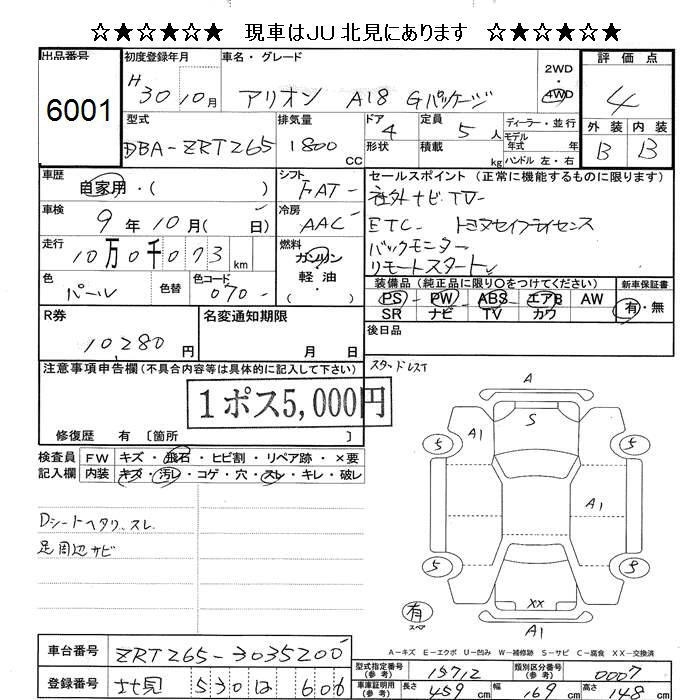 ☆★☆★☆★ 現車はJU北見にあります ☆★☆★☆★
出品番号
6001
初度登録年月
H30 10月
車名・グレード
アリオン A18 Gパッケージ
2WD
4WD
評価点
4
外装 内装
B B
型式
DBA-ZRT265
排気量
1800 CC
ドア
4
形状
定員
5 人
積載
kg
ディーラー・並行
モデル
年式 年
ハンドル 左・右
車歴
自家用・( )
シフト
FAT
セールスポイント (正常に機能するものに限ります)
社外ナビ TV
ETC トヨタセイフティセンス
バックモニター
リモートスタート
車検
9年 10月( 日)
冷房
AAC
走行
10万0千073 km
燃料
ガソリン
・
軽油
色
パール
色替
色コード
070
装備品 (純正品に限り○をつけてください)
PS PW ABS エアB AW
SR ナビ TV カワ
新車保証書
有・無
R券
10,280 円
名変通知期限
月 日
後日品
注意事項申告欄(不具合内容等は具体的に記入して下さい)
スタッドレスT
1ポス5,000円
修復歴 有 〔箇所 〕
検査員 FW キズ・飛石・ヒビ割・リペア跡・×要
記入欄 内装 キズ・汚レ・コゲ・穴・スレ・キレ・破レ
Dシートヘタリ、スレ
足周辺サビ
A
S
A1
5
5
A1
5
9
XX
有
スペア
A1
A-キズ E-エクボ U-凹み W-補修跡 S-サビ C-腐食 XX-交換済
車台番号
ZRT265-3035200
登録番号
北見 530 は 606
型式指定番号
(参考)
15712
類別区分番号
(参考)
0007
車庫証明用
(参考)
長さ 459 cm 幅 169 cm 高さ 148 cm